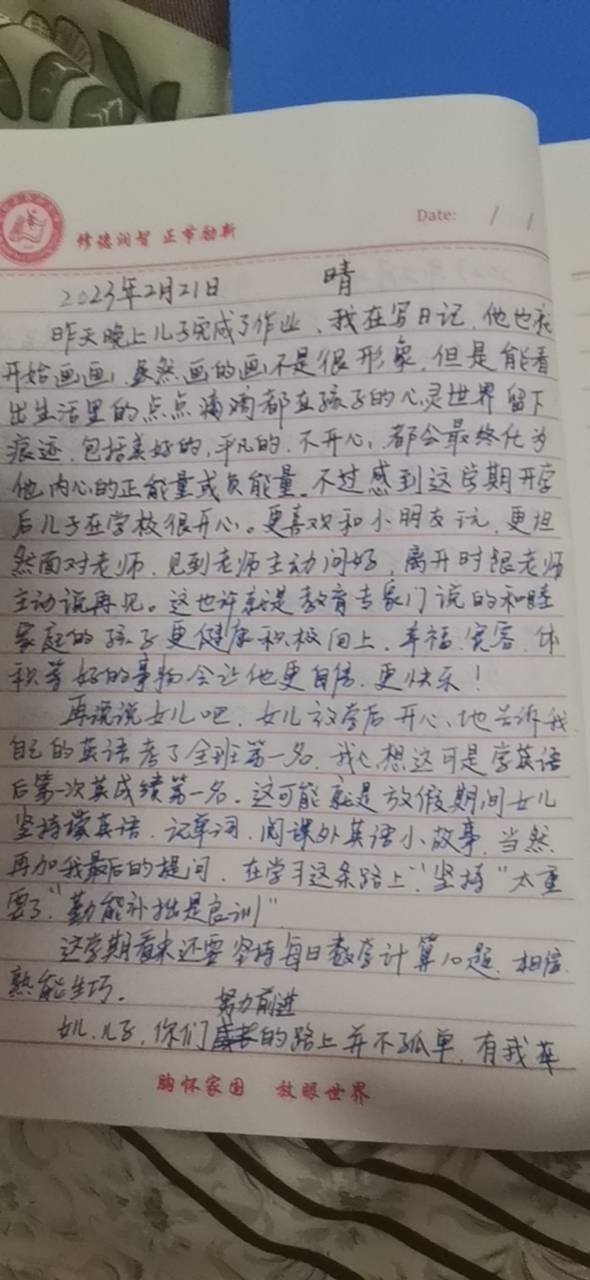 修德润智 正节励新
Date: / /
2023年2月21日 晴
昨天晚上儿子完成了作业、我在写日记,他也就
开始画画,虽然画的画不是很形象,但是能看
出生活里的点点滴滴都在孩子的心灵世界留下
痕迹,包括美好的,平凡的,不开心,都会最终化为
他内心的正能量或负能量。不过感到这学期开学
后儿子在学校很开心。更喜欢和小朋友玩,更坦
然面对老师,见到老师主动问好,离开时跟老师
主动说再见。这也许就是教育专家门说的和睦
家庭的孩子更健康积极向上,幸福,宽容,体
积等好的事物会让他更自信,更快乐!
再说说女儿吧,女儿放学后开心地告诉我
自己的英语考了全班第一名,我心想这可是学英语
后第一次英成绩第一名。这可能就是放假期间女儿
坚持读英语,记单词,阅课外英语小故事,当然
再加我最后的提问,在学习这条路上,"坚持"太重
要了,"勤能补拙是良训"
这学期看来还要坚持每日数学计算10题,相信
熟能生巧。
努力前进
女儿,儿子,你们的路上并不孤单,有我
胸怀家国 放眼世界